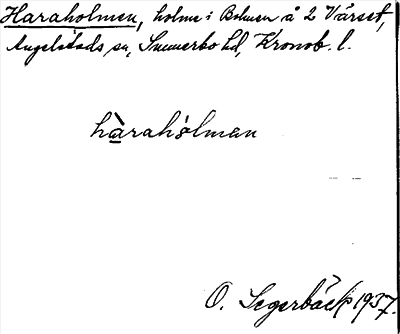 Haraholmen, holme i Bolmen å 2 Värset,
Angelstads sn, Sunnerbo hd, Kronob. l.
hàrahólman
O. Segerbäck 1937.